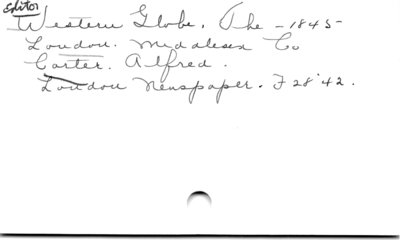 Editor
Western Globe. The - 1845 -
London. Middlesex Co
Carter. Alfred.
London Newspaper. F 28 '42.